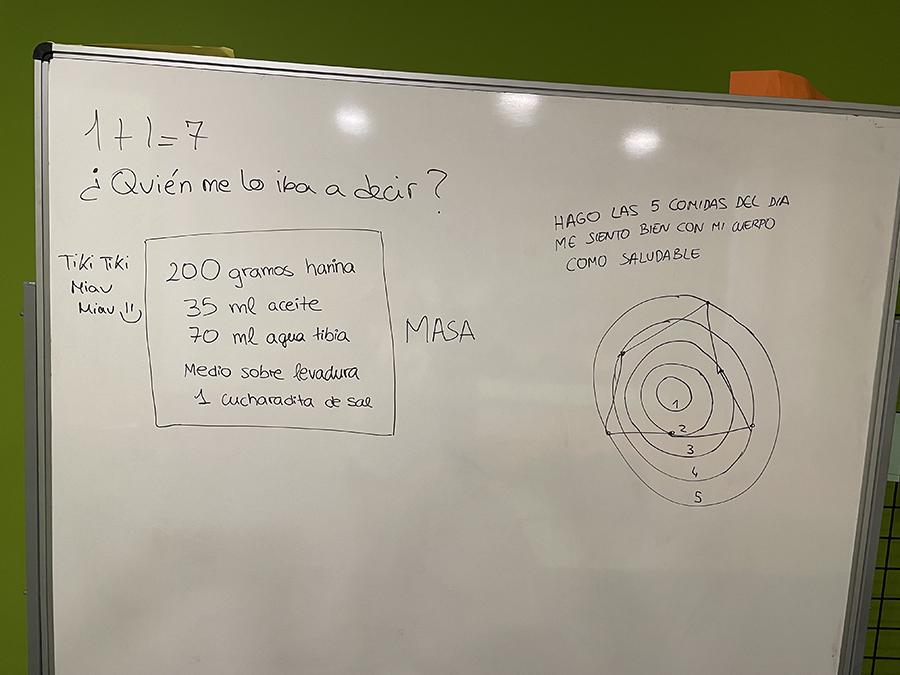 1+1=7
¿Quién me lo iba a decir?
Tiki Tiki
Miau
Miau
200 gramos harina
35 ml aceite
70 ml agua tibia
Medio sobre levadura
1 cucharadita de sal
MASA
HAGO LAS 5 COMIDAS DEL DIA
ME SIENTO BIEN CON MI CUERPO
COMO SALUDABLE
1
2
3
4
5